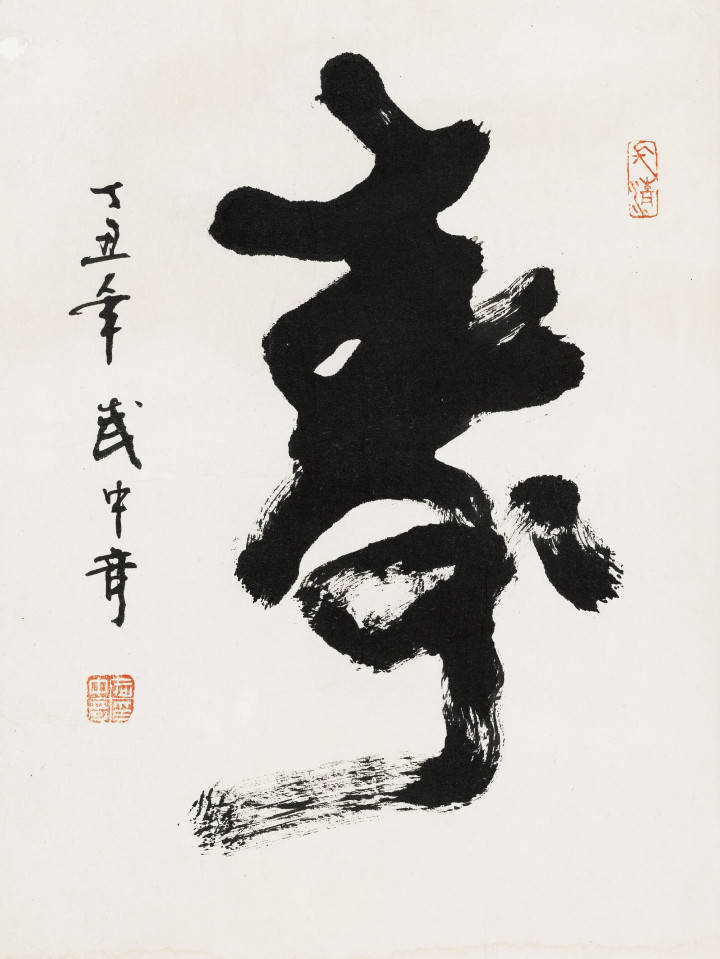 寿
丁丑年 武中奇